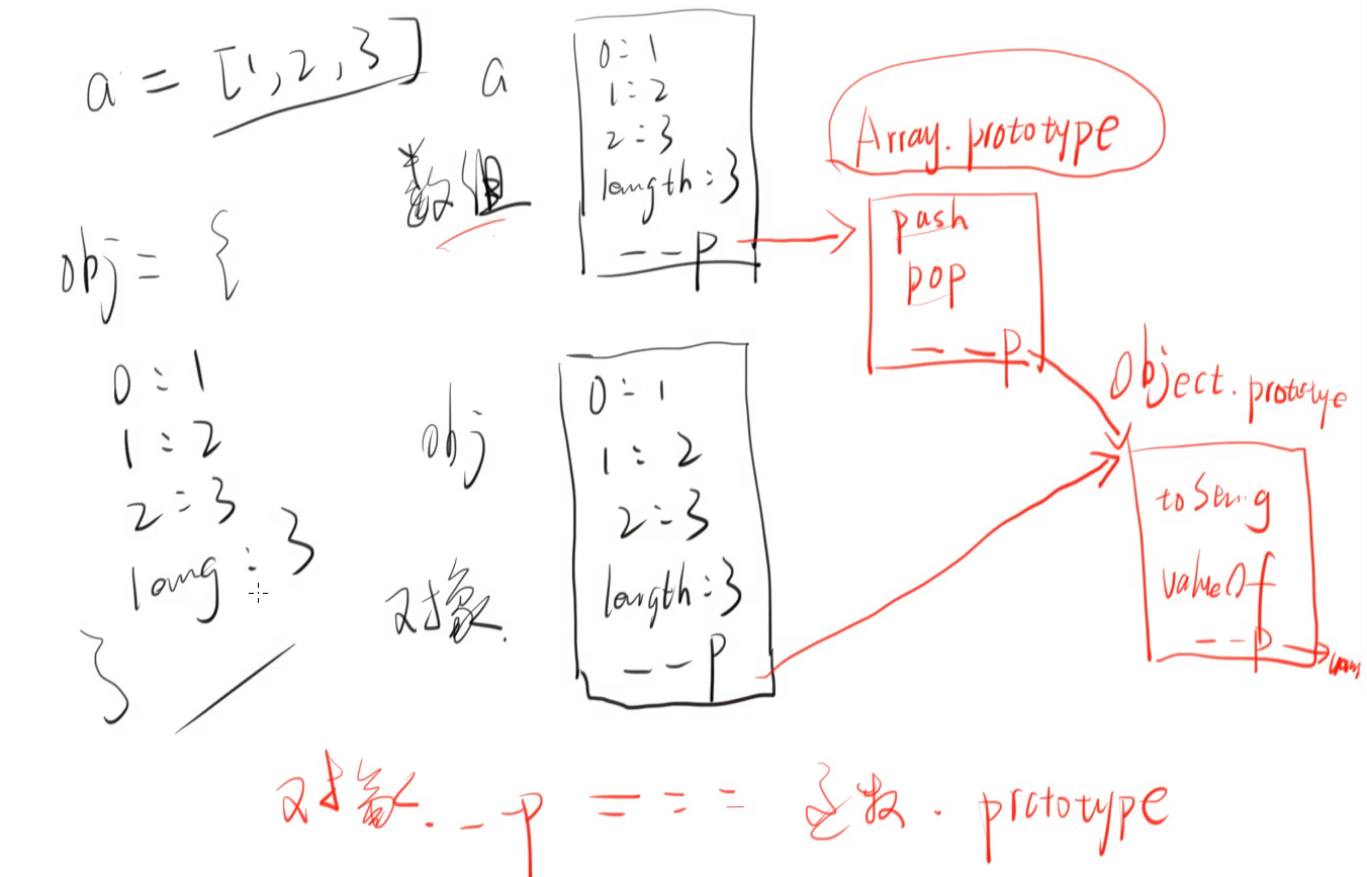 a = [1,2,3]
obj = {
0:1
1:2
2:3
: 3
}
a
数组
0:1
1:2
2:3
length:3
--p
Array.prototype
push
pop
--p
obj
对象.
0:1
1:2
2:3
length:3
--p
Object.
valueOf
--p
对象.--p === 函数.prototype